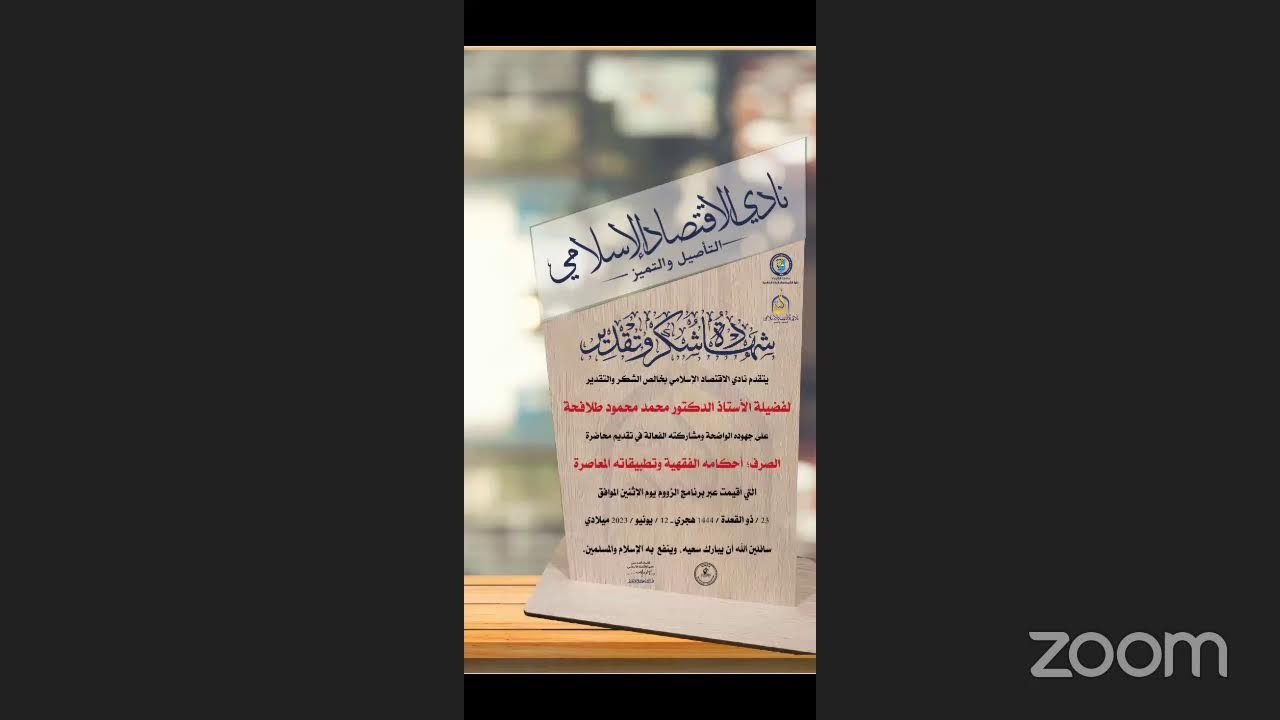 نادي الاقتصاد الإسلامي
التأصيل والتميز
شهادة شكر وتقدير
يتقدم نادي الاقتصاد الإسلامي بخالص الشكر والتقدير
لفضيلة الأستاذ الدكتور محمد محمود طلافحة
على جهوده الواضحة ومشاركته الفعالة في تقديم محاضرة
الصرف؛ أحكامه الفقهية وتطبيقاته المعاصرة
التي أقيمت عبر برنامج الزووم يوم الاثنين الموافق
23 / ذو القعدة / 1444 هجري ـ 12 / يونيو / 2023 ميلادي
سائلين الله أن يبارك سعيه، وينفع به الإسلام والمسلمين.
zoom